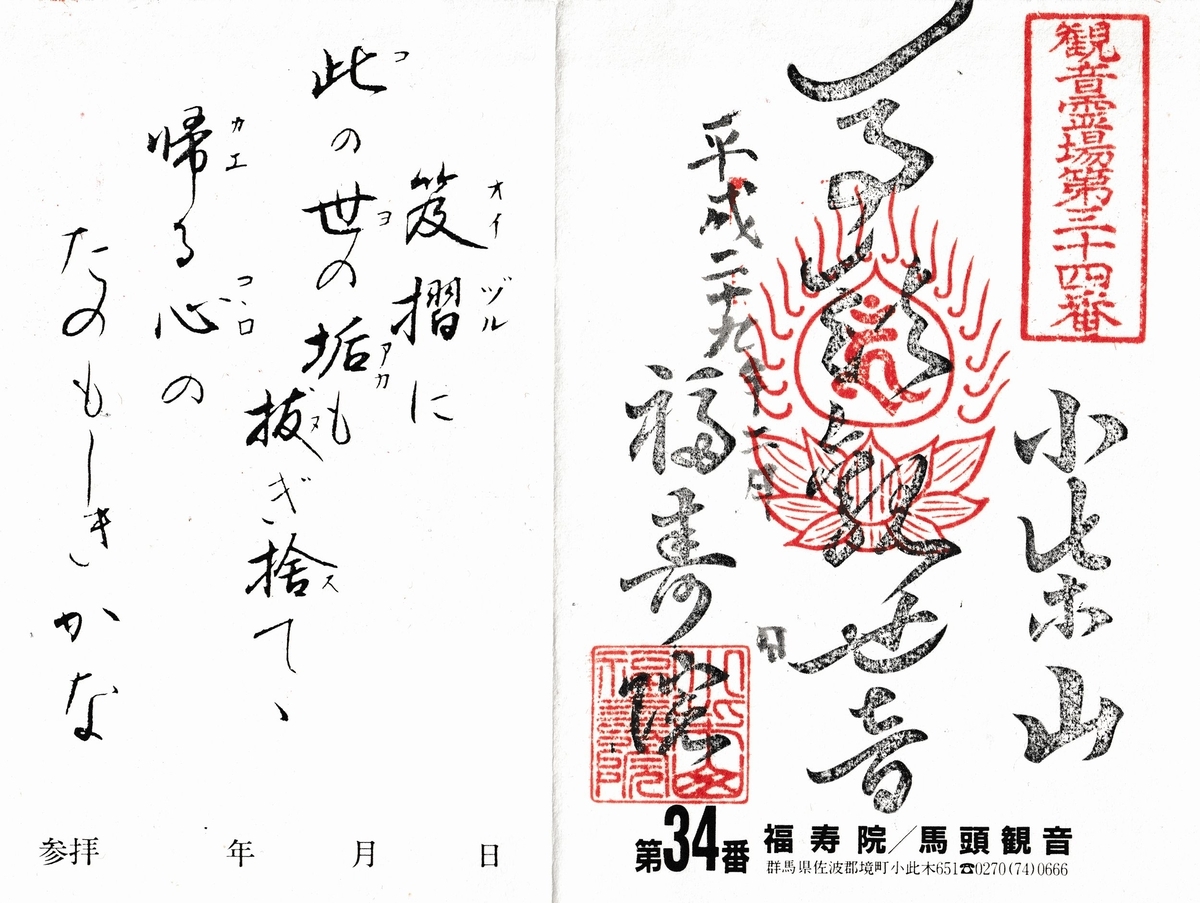 観音霊場第三十四番
小此木山
馬頭観世音
平成二十九年十二月 日
福寿院
小此木山
福寿院
第34番 福寿院／馬頭観音
群馬県佐波郡境町小此木651☎0270(74)0666
笈摺に
オイヅル
此の世の垢も
コ ヨ アカ
抜ぎ捨てゝ
ヌ ス
帰る心の
カエ コヽロ
たのもしきかな
参拝 年 月 日